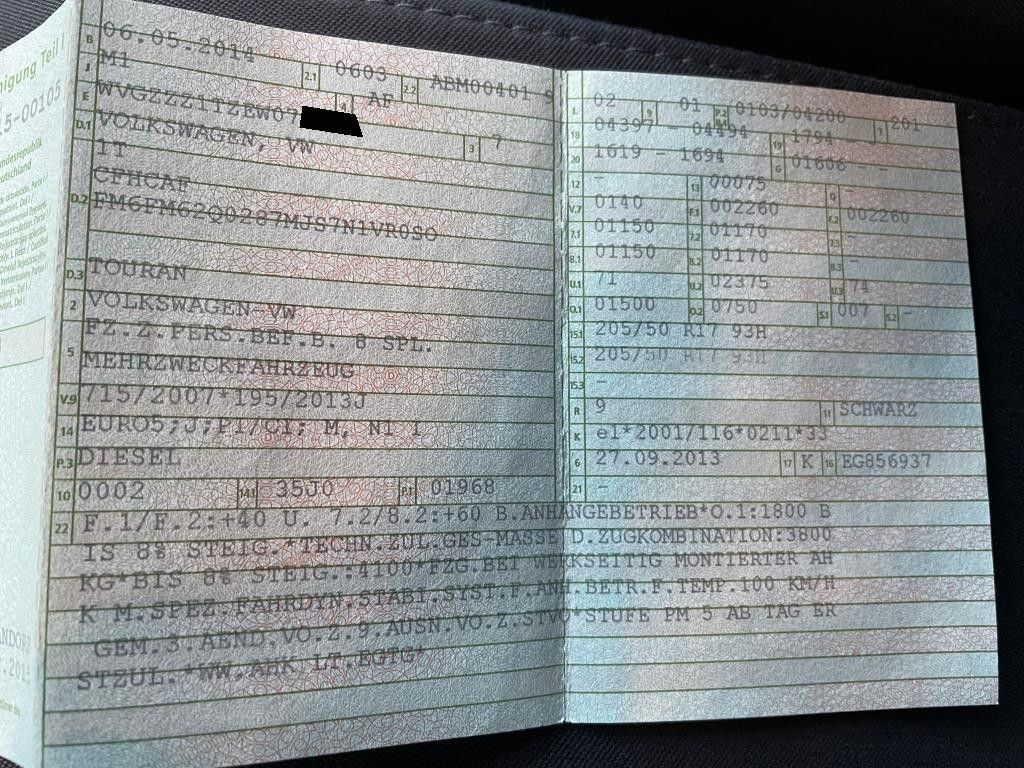 nigung Teil I
5-00105
undesrepublik
eutschland
ANDORF
.2015
B 06.05.2014 2.1 0603 2.2 ABM00401 9
J M1 4 AF
E WVGZZZ1TZEW07
D.1 VOLKSWAGEN, VW 3 7
1T
CFHCAF
D.2 FM6FM62Q0287MJS7N1VR0SO
D.3 TOURAN
2 VOLKSWAGEN-VW
FZ.Z.PERS.BEF.B. 8 SPL.
5 MEHRZWECKFAHRZEUG
V.9 715/2007*195/2013J
14 EURO5;J;PI/CI; M, N1 I
P.3 DIESEL
10 0002 14.1 35J0 P.1 01968
L 02 9 01 P.2 P.4 0103/04200 T 201
18 04397 - 04494 19 1794 -
20 1619 - 1694 G 01606 - -
12 - 13 00075 Q -
V.7 0140 F.1 002260 F.2 002260
7.1 01150 7.2 01170 7.3 -
8.1 01150 8.2 01170 8.3 -
U.1 71 U.2 02375 U.3 74
O.1 01500 O.2 0750 S.1 007 S.2 -
15.1 205/50 R17 93H
15.2 205/50 R17 93H
15.3 -
R 9 11 SCHWARZ
K e1*2001/116*0211*33
6 27.09.2013 17 K 16 EG856937
21 -
22 F.1/F.2:+40 U. 7.2/8.2:+60 B.ANHÄNGEBETRIEB*O.1:1800 B
IS 8% STEIG.*TECHN.ZUL.GES-MASSE D.ZUGKOMBINATION:3800
KG*BIS 8% STEIG.:4100*FZG.BEI WERKSEITIG MONTIERTER AH
K M.SPEZ.FAHRDYN.STABI.SYST.F.ANH.BETR.F.TEMP.100 KM/H
GEM.3.AEND.VO.Z.9.AUSN.VO.Z.STVO*STUFE PM 5 AB TAG ER
STZUL.*WW.AHK LT.EGTG*